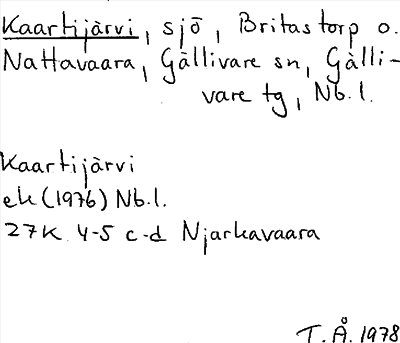 Kaartijärvi, sjö, Britastorp o.
Nattavaara, Gällivare sn, Gälli-
vare tg, Nb.l.
Kaartijärvi
ek (1976) Nb.l.
27K 4-5 c-d Njarkavaara
T.Å. 1978